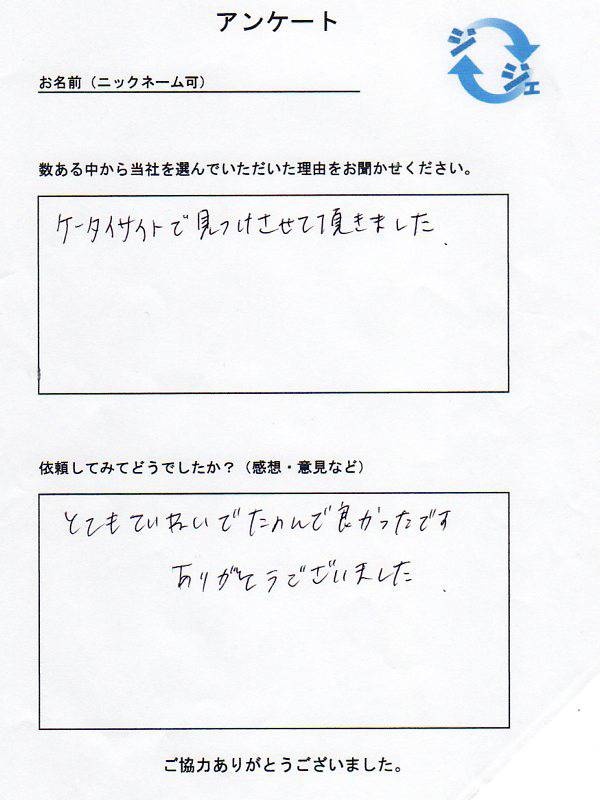 アンケート
ジジェ
お名前（ニックネーム可）
数ある中から当社を選んでいただいた理由をお聞かせください。
ケータイサイトで見つけさせて頂きました.
依頼してみてどうでしたか？（感想・意見など）
とてもていねいでたのんで良かったです
ありがとうございました.
ご協力ありがとうございました。